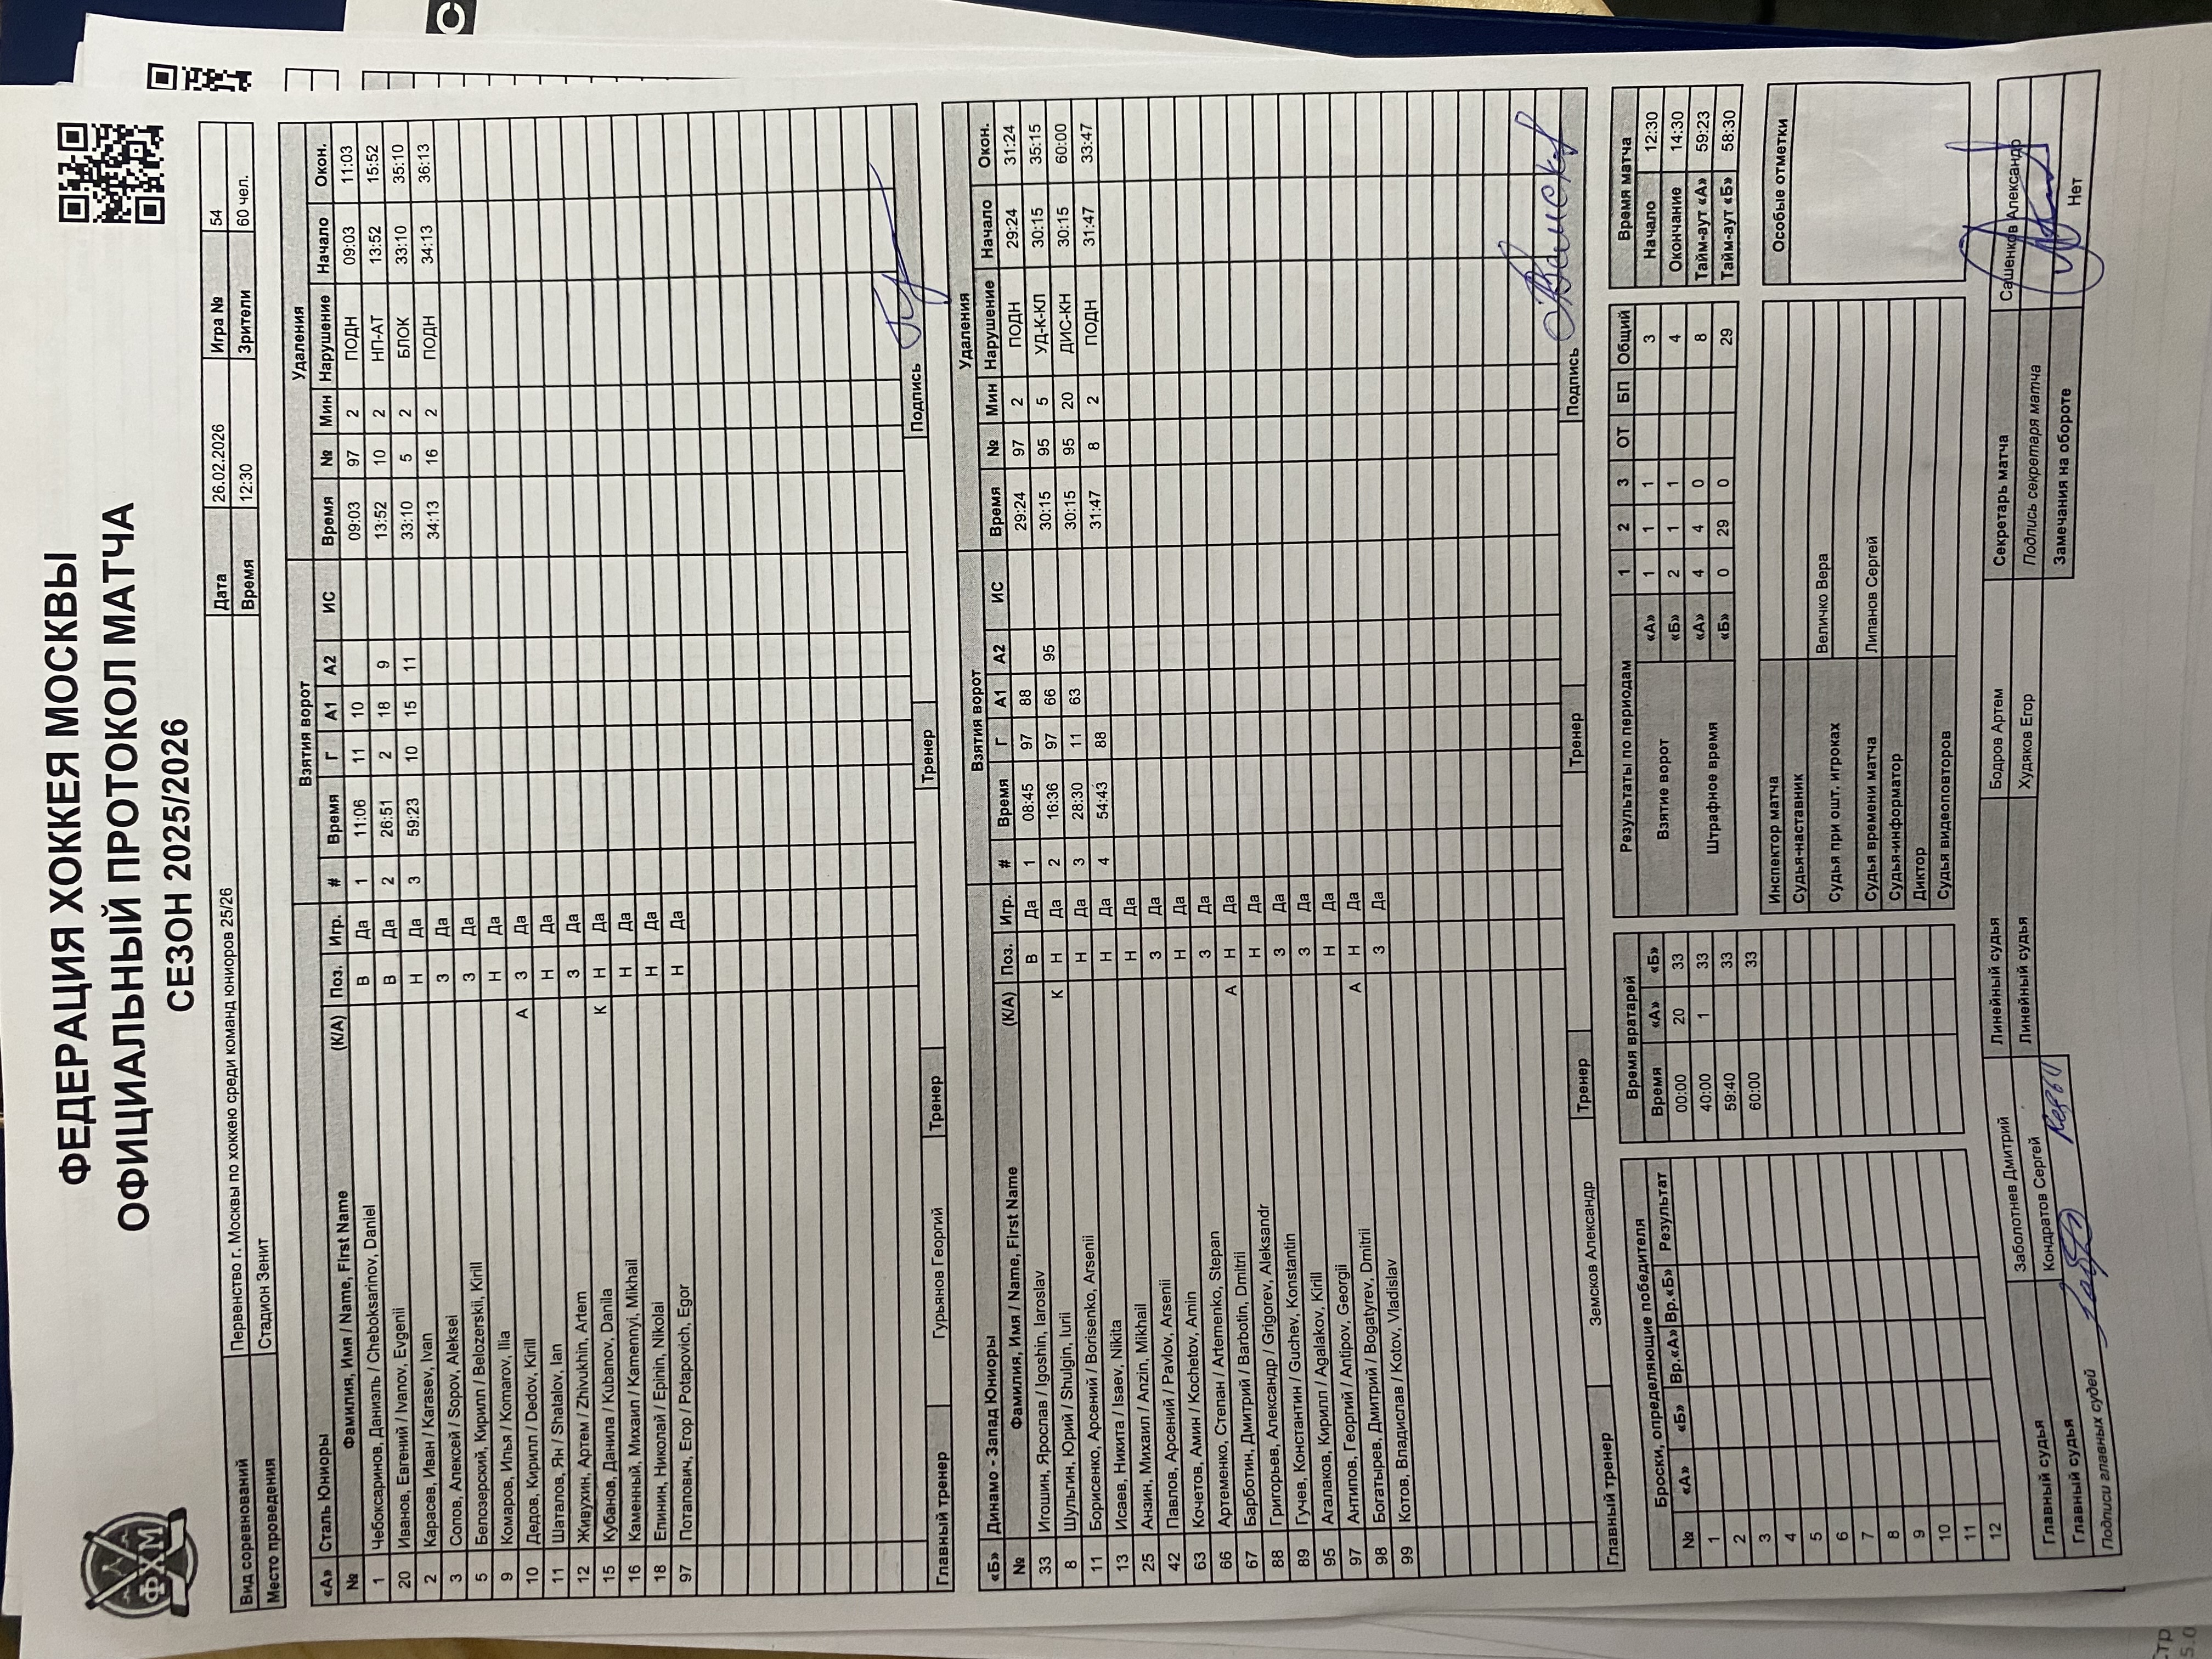 ФЕДЕРАЦИЯ ХОККЕЯ МОСКВЫ
ОФИЦИАЛЬНЫЙ ПРОТОКОЛ МАТЧА
СЕЗОН 2025/2026
ФХМ
Вид соревнований Первенство г. Москвы по хоккею среди команд юниоров 25/26 Дата 26.02.2026 Игра № 54
Место проведения Стадион Зенит Время 12:30 Зрители 60 чел.
«А» Сталь Юниоры Взятия ворот Удаления
№ Фамилия, Имя / Name, First Name (К/А) Поз. Игр. # Время Г А1 А2 ИС Время № Мин Нарушение Начало Окон.
1 Чебоксаринов, Даниэль / Cheboksarinov, Daniel В Да 1 11:06 11 10 09:03 97 2 ПОДН 09:03 11:03
20 Иванов, Евгений / Ivanov, Evgenii В Да 2 26:51 2 18 9 13:52 10 2 НП-АТ 13:52 15:52
2 Карасев, Иван / Karasev, Ivan Н Да 3 59:23 10 15 11 33:10 5 2 БЛОК 33:10 35:10
3 Сопов, Алексей / Sopov, Aleksei З Да 34:13 16 2 ПОДН 34:13 36:13
5 Белозерский, Кирилл / Belozerskii, Kirill З Да
9 Комаров, Илья / Komarov, Ilia Н Да
10 Дедов, Кирилл / Dedov, Kirill А З Да
11 Шаталов, Ян / Shatalov, Ian Н Да
12 Живухин, Артем / Zhivukhin, Artem З Да
15 Кубанов, Данила / Kubanov, Danila К Н Да
16 Каменный, Михаил / Kamennyi, Mikhail Н Да
18 Епинин, Николай / Epinin, Nikolai Н Да
97 Потапович, Егор / Potapovich, Egor Н Да
Главный тренер Гурьянов Георгий Тренер Тренер Подпись
«Б» Динамо - Запад Юниоры Взятия ворот Удаления
№ Фамилия, Имя / Name, First Name (К/А) Поз. Игр. # Время Г А1 А2 ИС Время № Мин Нарушение Начало Окон.
33 Игошин, Ярослав / Igoshin, Iaroslav В Да 1 08:45 97 88 29:24 97 2 ПОДН 29:24 31:24
8 Шульгин, Юрий / Shulgin, Iurii К Н Да 2 16:36 97 66 95 30:15 95 5 УД-К-КЛ 30:15 35:15
11 Борисенко, Арсений / Borisenko, Arsenii Н Да 3 28:30 11 63 30:15 95 20 ДИС-КН 30:15 60:00
13 Исаев, Никита / Isaev, Nikita Н Да 4 54:43 88 31:47 8 2 ПОДН 31:47 33:47
25 Анзин, Михаил / Anzin, Mikhail Н Да
42 Павлов, Арсений / Pavlov, Arsenii З Да
63 Кочетов, Амин / Kochetov, Amin Н Да
66 Артеменко, Степан / Artemenko, Stepan З Да
67 Барботин, Дмитрий / Barbotin, Dmitrii А Н Да
88 Григорьев, Александр / Grigorev, Aleksandr Н Да
89 Гучев, Константин / Guchev, Konstantin З Да
95 Агалаков, Кирилл / Agalakov, Kirill З Да
97 Антипов, Георгий / Antipov, Georgii Н Да
98 Богатырев, Дмитрий / Bogatyrev, Dmitrii А Н Да
99 Котов, Владислав / Kotov, Vladislav З Да
Главный тренер Земсков Александр Тренер Тренер Подпись
Броски, определяющие победителя
№ «А» «Б» Вр.«А» Вр.«Б» Результат
1
2
3
4
5
6
7
8
9
10
11
12
Время вратарей
Время «А» «Б»
00:00 20 33
40:00 1 33
59:40 33
60:00 33
Результаты по периодам 1 2 3 ОТ БП Общий
Взятие ворот «А» 1 1 1 3
«Б» 2 1 1 4
Штрафное время «А» 4 4 0 8
«Б» 0 29 0 29
Время матча
Начало 12:30
Окончание 14:30
Тайм-аут «А» 59:23
Тайм-аут «Б» 58:30
Инспектор матча
Судья-наставник
Судья при ошт. игроках Величко Вера
Судья времени матча Липанов Сергей
Судья-информатор
Диктор
Судья видеоповторов
Особые отметки
Главный судья Заболотнев Дмитрий Линейный судья Бодров Артем Секретарь матча Сашенков Александр
Главный судья Кондратов Сергей Линейный судья Худяков Егор Подпись секретаря матча
Подписи главных судей Замечания на обороте Нет